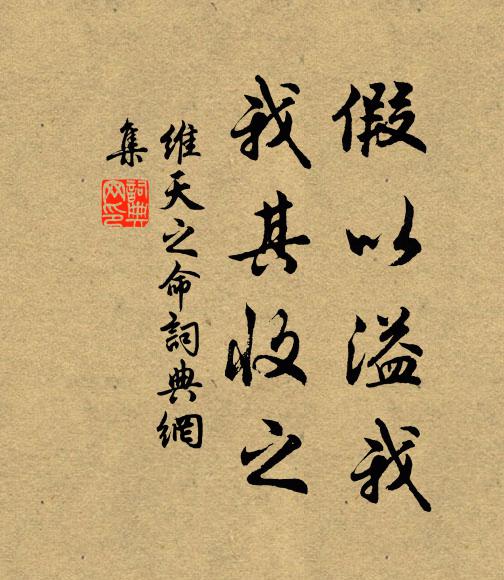 假以溢我
我其收之
維天之命詞典網
集
詞典網印